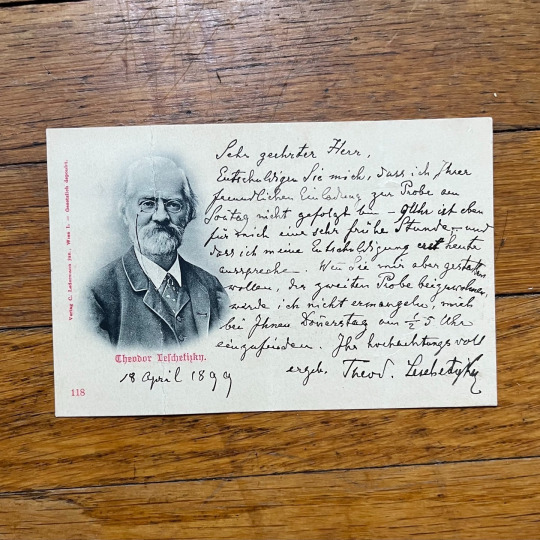 Sehr geehrter Herr,
Entschuldigen Sie mich, dass ich Ihrer
freundlichen Einladung zur Probe am
Sontag nicht gefolgt bin – 9 Uhr ist eben
für mich eine sehr frühe Stunde – und
dass ich meine Entschuldigung erst heute
ausspreche. Wen Sie mir aber gestatten
wollen, der zweiten Probe beizuwohnen,
werde ich nicht ermangeln, mich
bei Ihnen Donerstag um ½ 5 Uhr
einzufinden. Ihr hochachtungsvoll
ergeb. Theod. Leschetizky
Theodor Leschetizky.
18 April 1899
118
Verlag C. Ledermann jun., Wien I. – Gesetzlich deponirt.